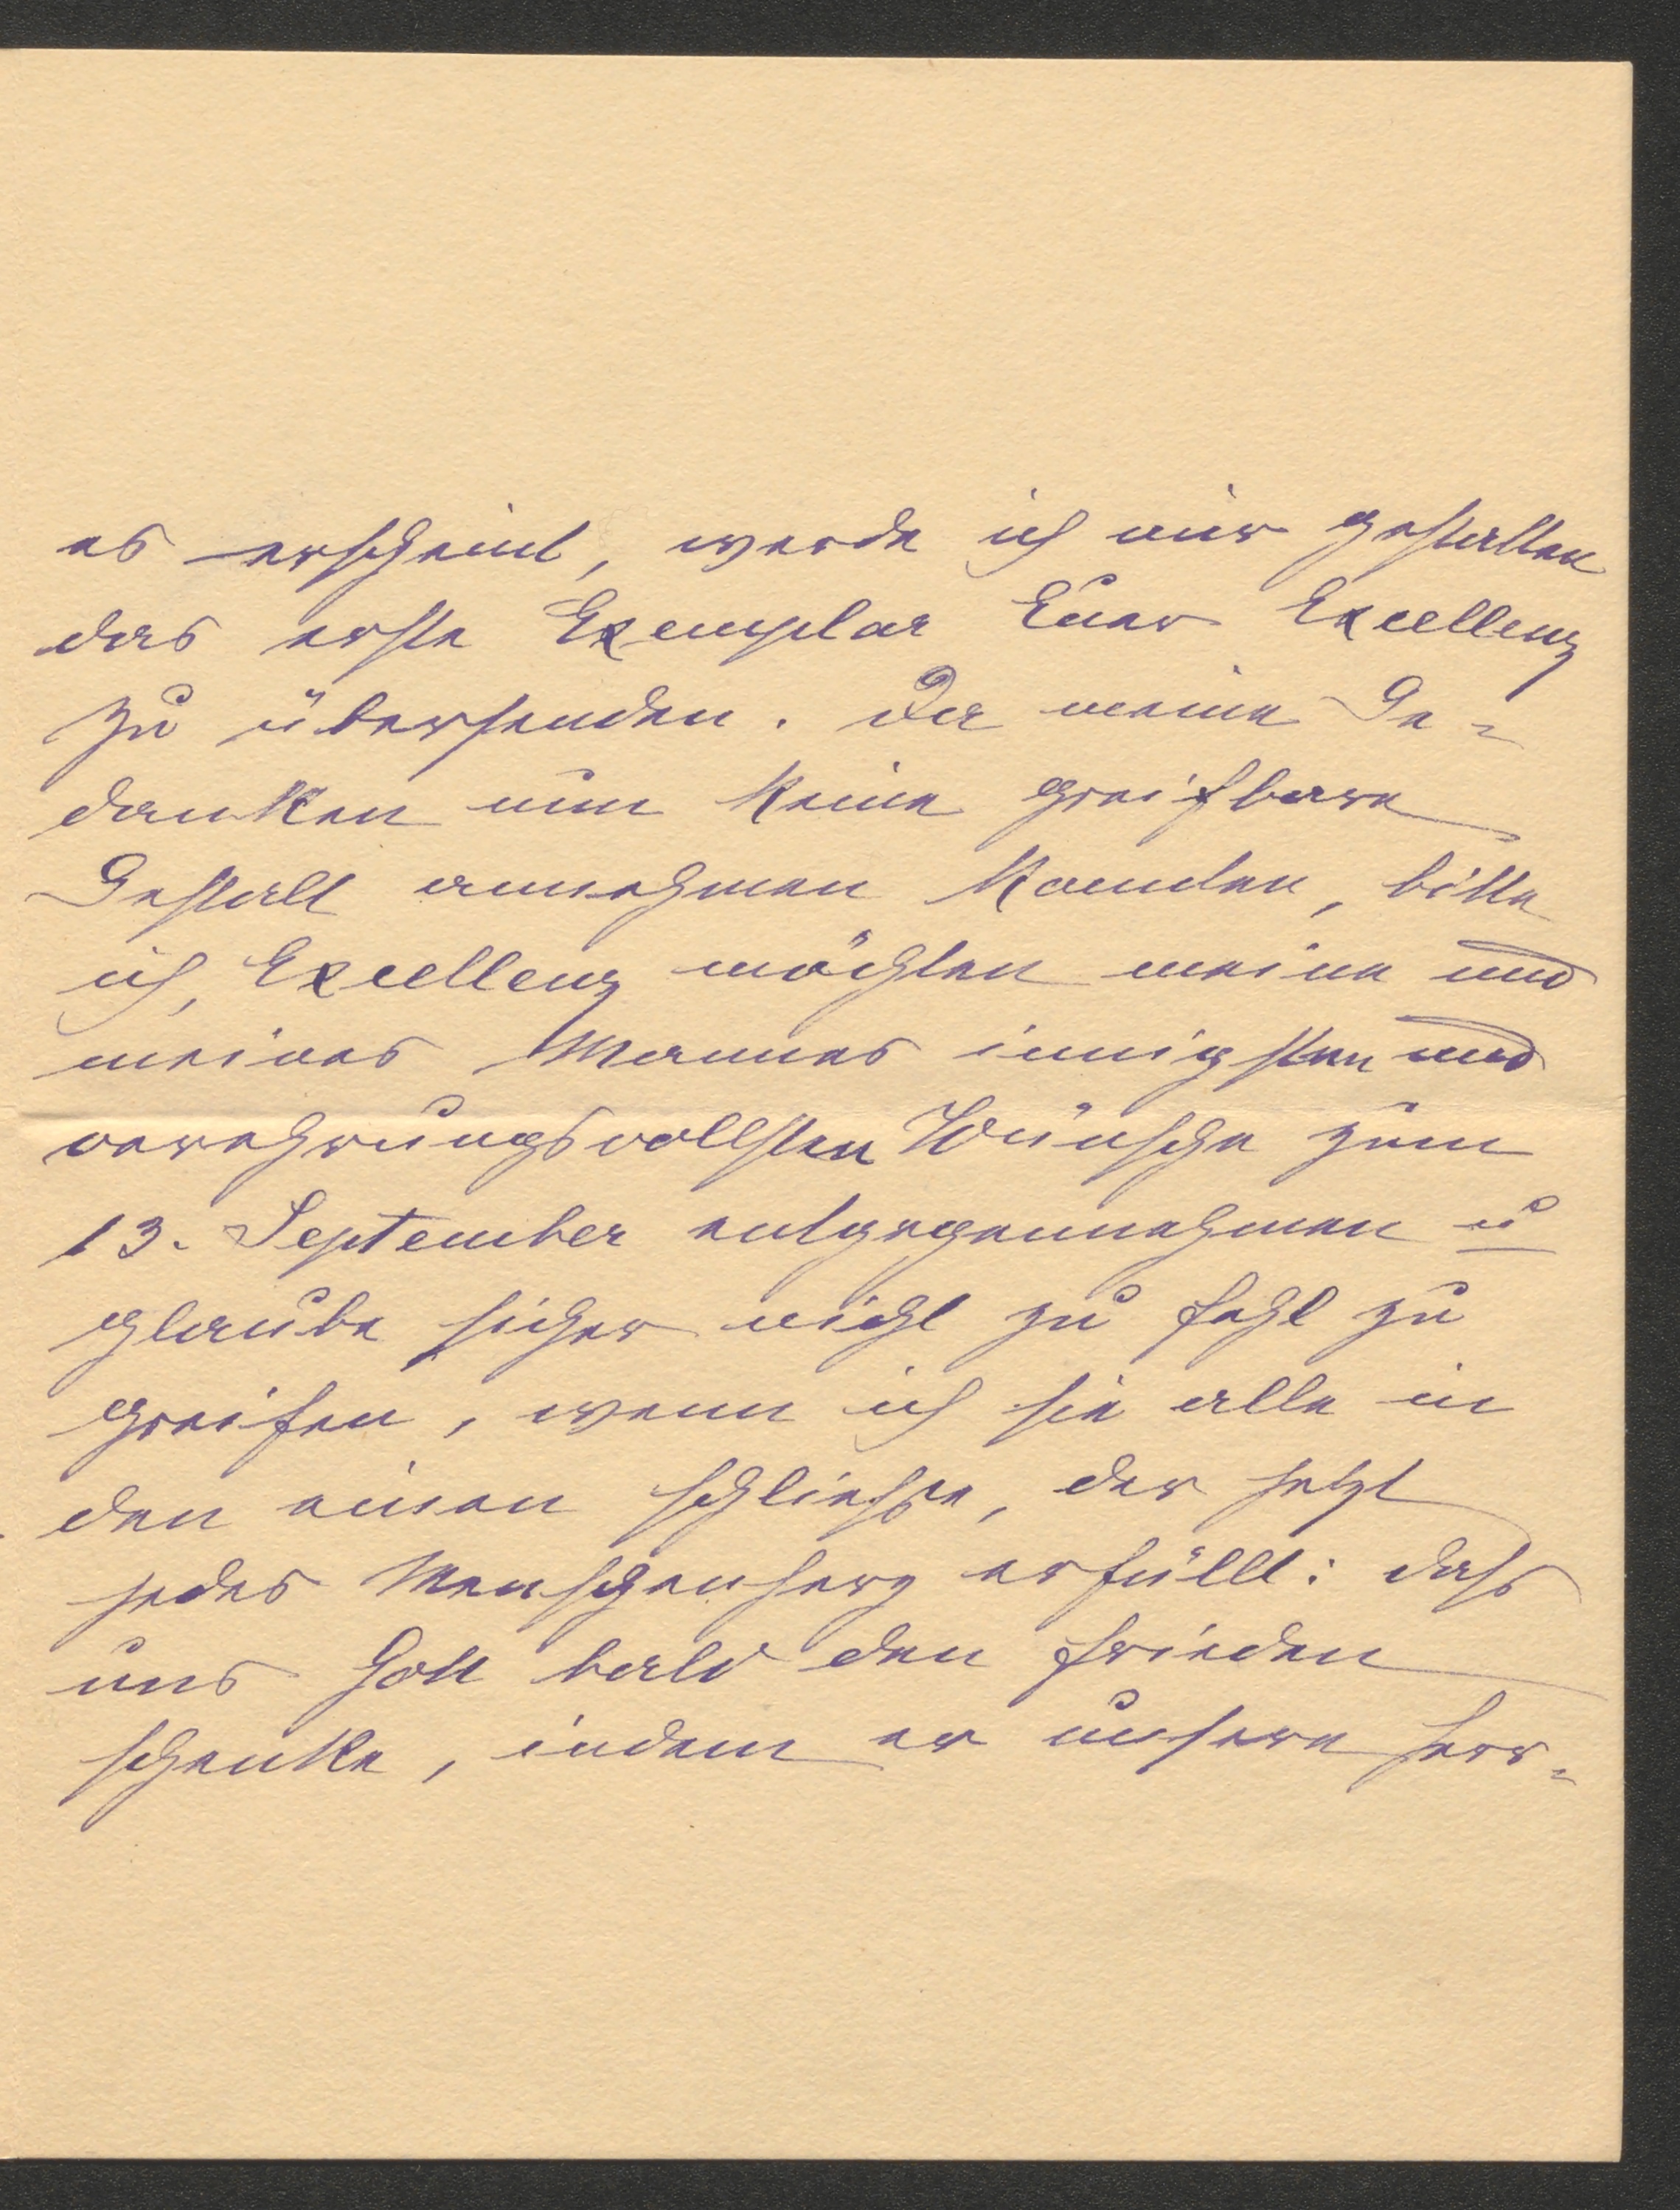 es erscheint, werde ich mir gestatten
das erste Exemplar Euer Excellenz
zu übersenden. Da meine Ge-
danken nun keine greifbare
Gestalt annehmen konnten, bitte
ich, Excellenz möchten meine und
meines Mannes innigsten und
verehrungsvollsten Wünsche zum
13. September entgegennehmen u
glaube sicher nicht zu fehl zu
greifen, wenn ich sie alle in
den einen schliesse, der jetzt
jedes Menschenherz erfüllt: dass
uns Gott bald den Frieden
schenke, indem er unsere herr-